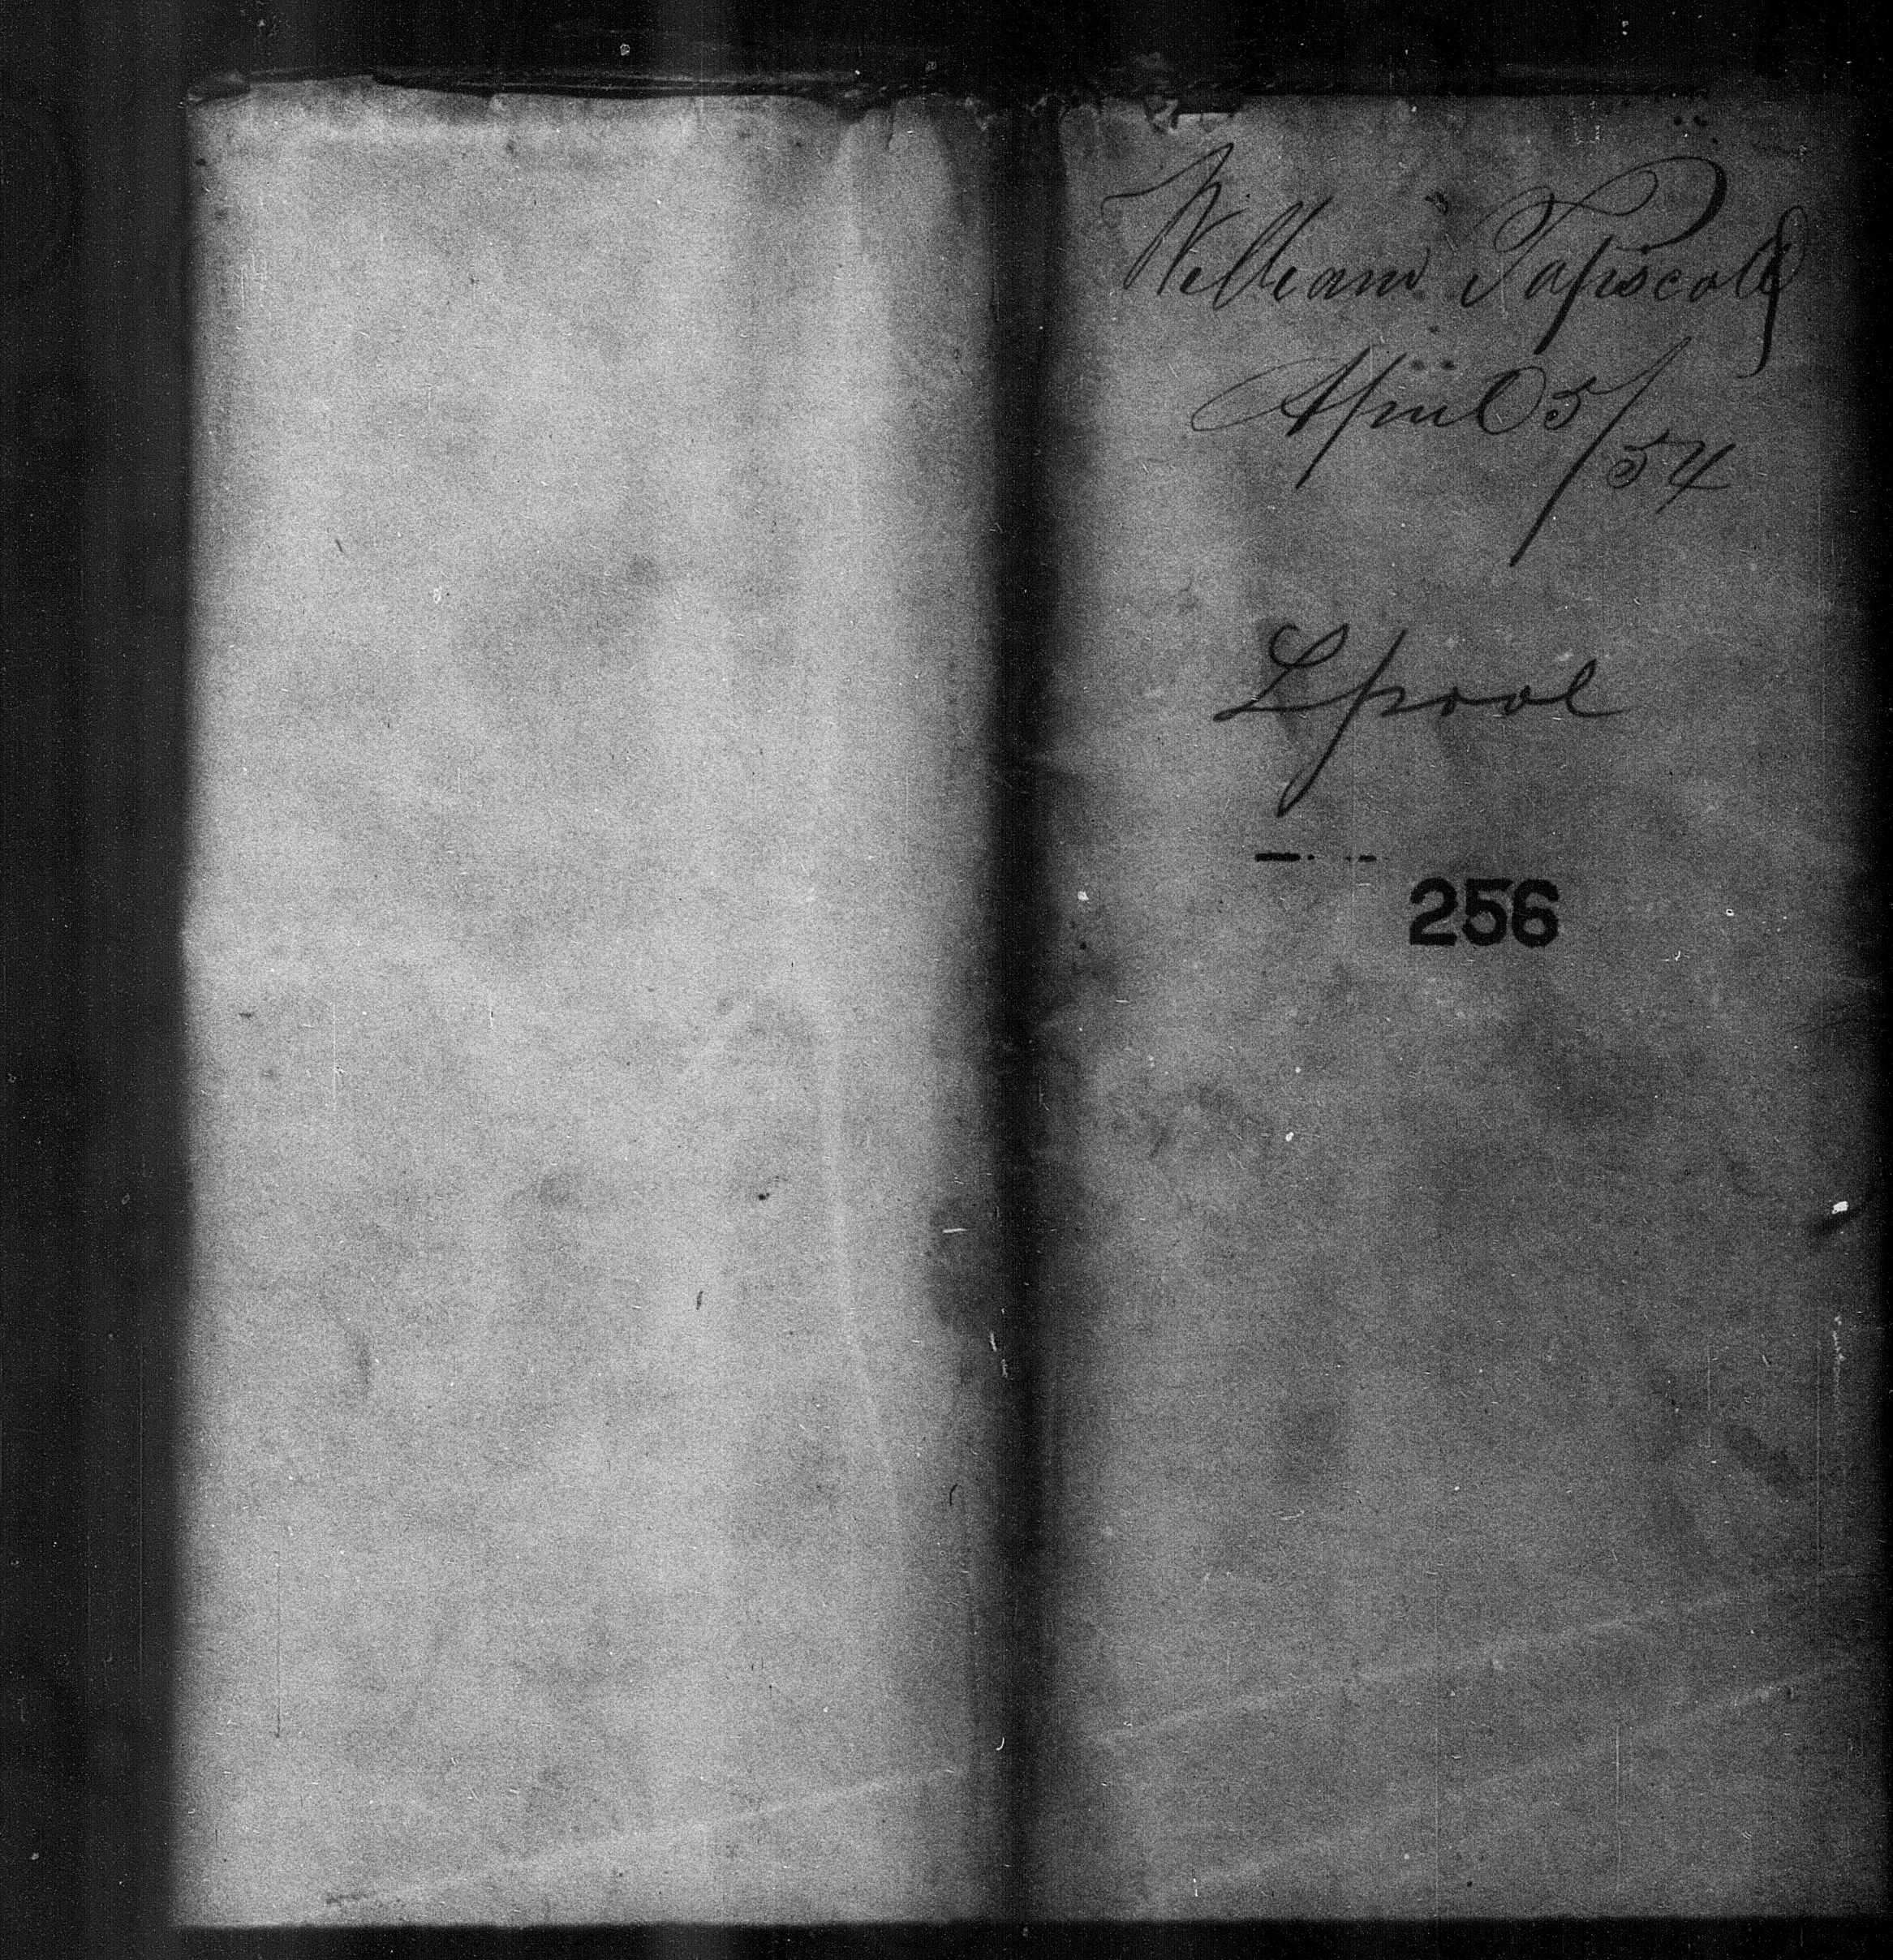 William Tapscott
April 5/54
Lpool
256